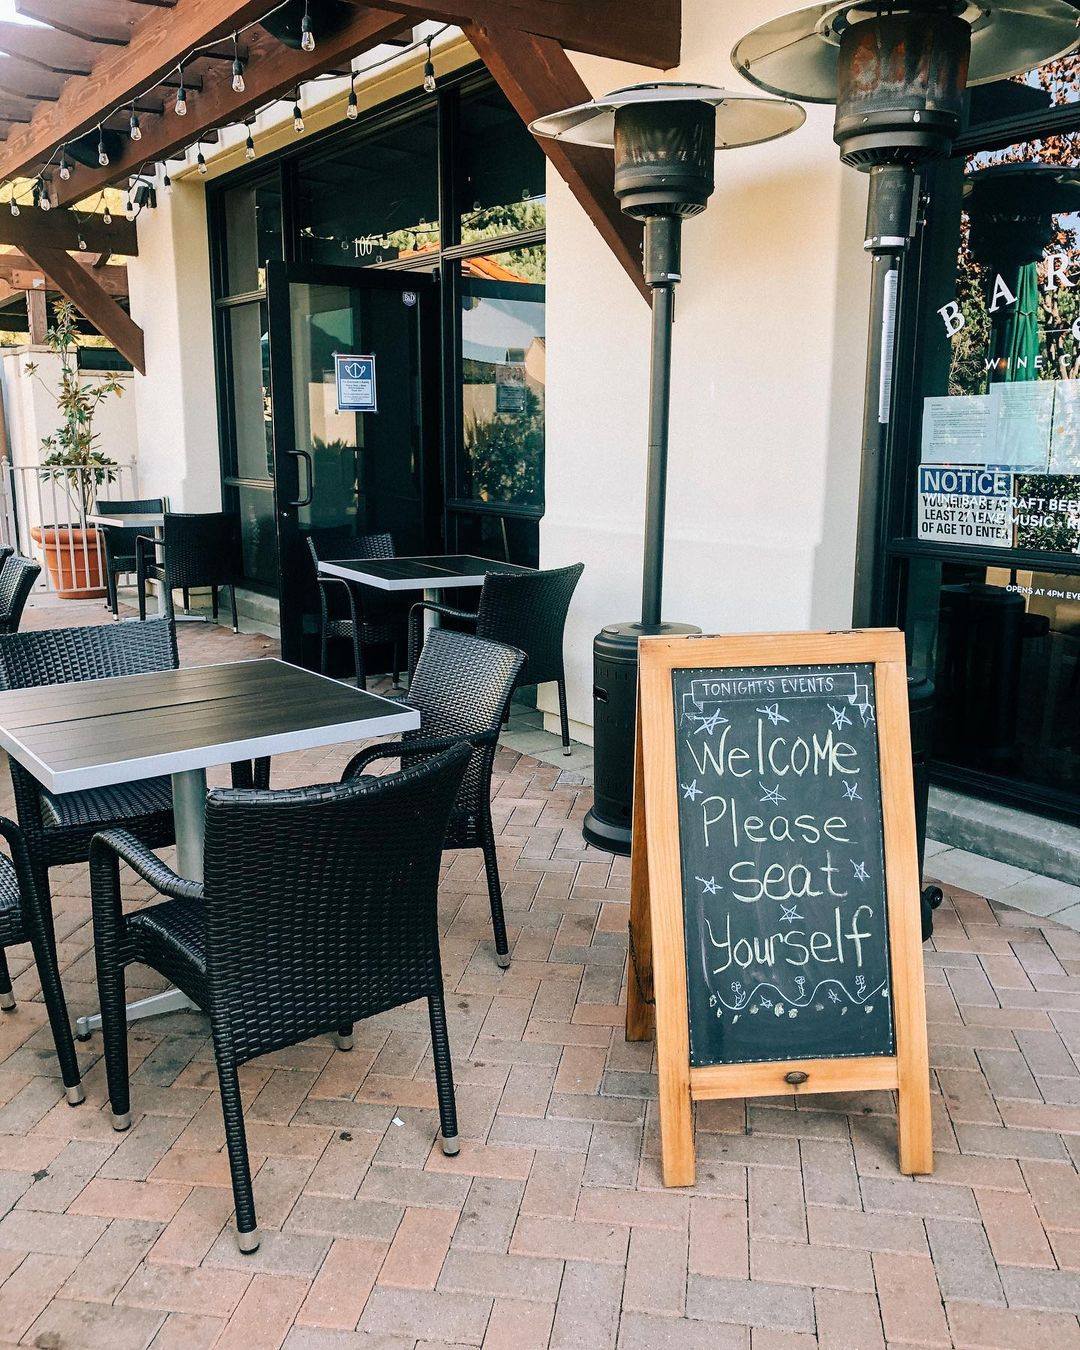 106
BAR
WINE
NOTICE
YOU MUST BE AT
LEAST 21 YEARS
OF AGE TO ENTER
WINE BAR CRAFT BEE
MUSIC
OPENS AT 4PM EVE
TONIGHT'S EVENTS
Welcome
Please
seat
Yourself